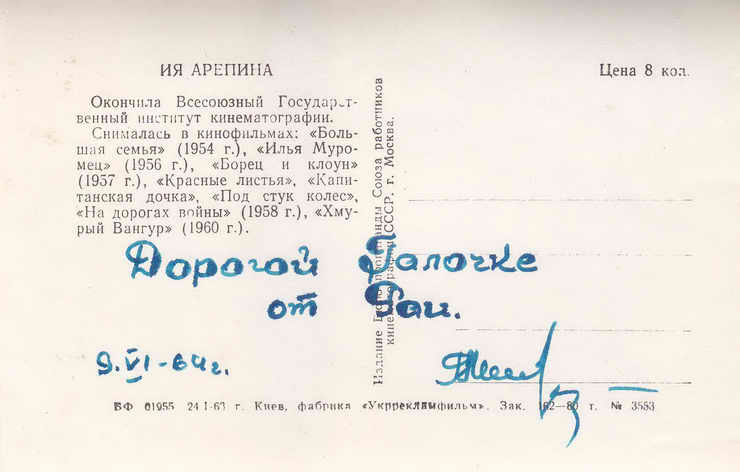 ИЯ АРЕПИНА
Цена 8 коп.
Окончила Всесоюзный Государст-
венный институт кинематографии.
Снималась в кинофильмах: «Боль-
шая семья» (1954 г.), «Илья Муро-
мец» (1956 г.), «Борец и клоун»
(1957 г.), «Красные листья», «Капи-
танская дочка», «Под стук колес»,
«На дорогах войны» (1958 г.), «Хму-
рый Вангур» (1960 г.).
Издание Бюро пропаганды Союза работников
СССР, г. Москва.
Дорогой Галочке
от Раи.
9.VI-64г.
БФ 01955 24 I-63 г. Киев, фабрика «Укррекламфильм». Зак. 162—80 т. № 3553